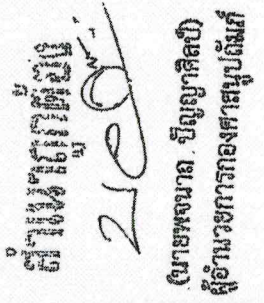 สำเนาถูกต้อง
(นายพจนาถ ปัญญาศิลป์)
ผู้อำนวยการกองศาสนูปถัมภ์